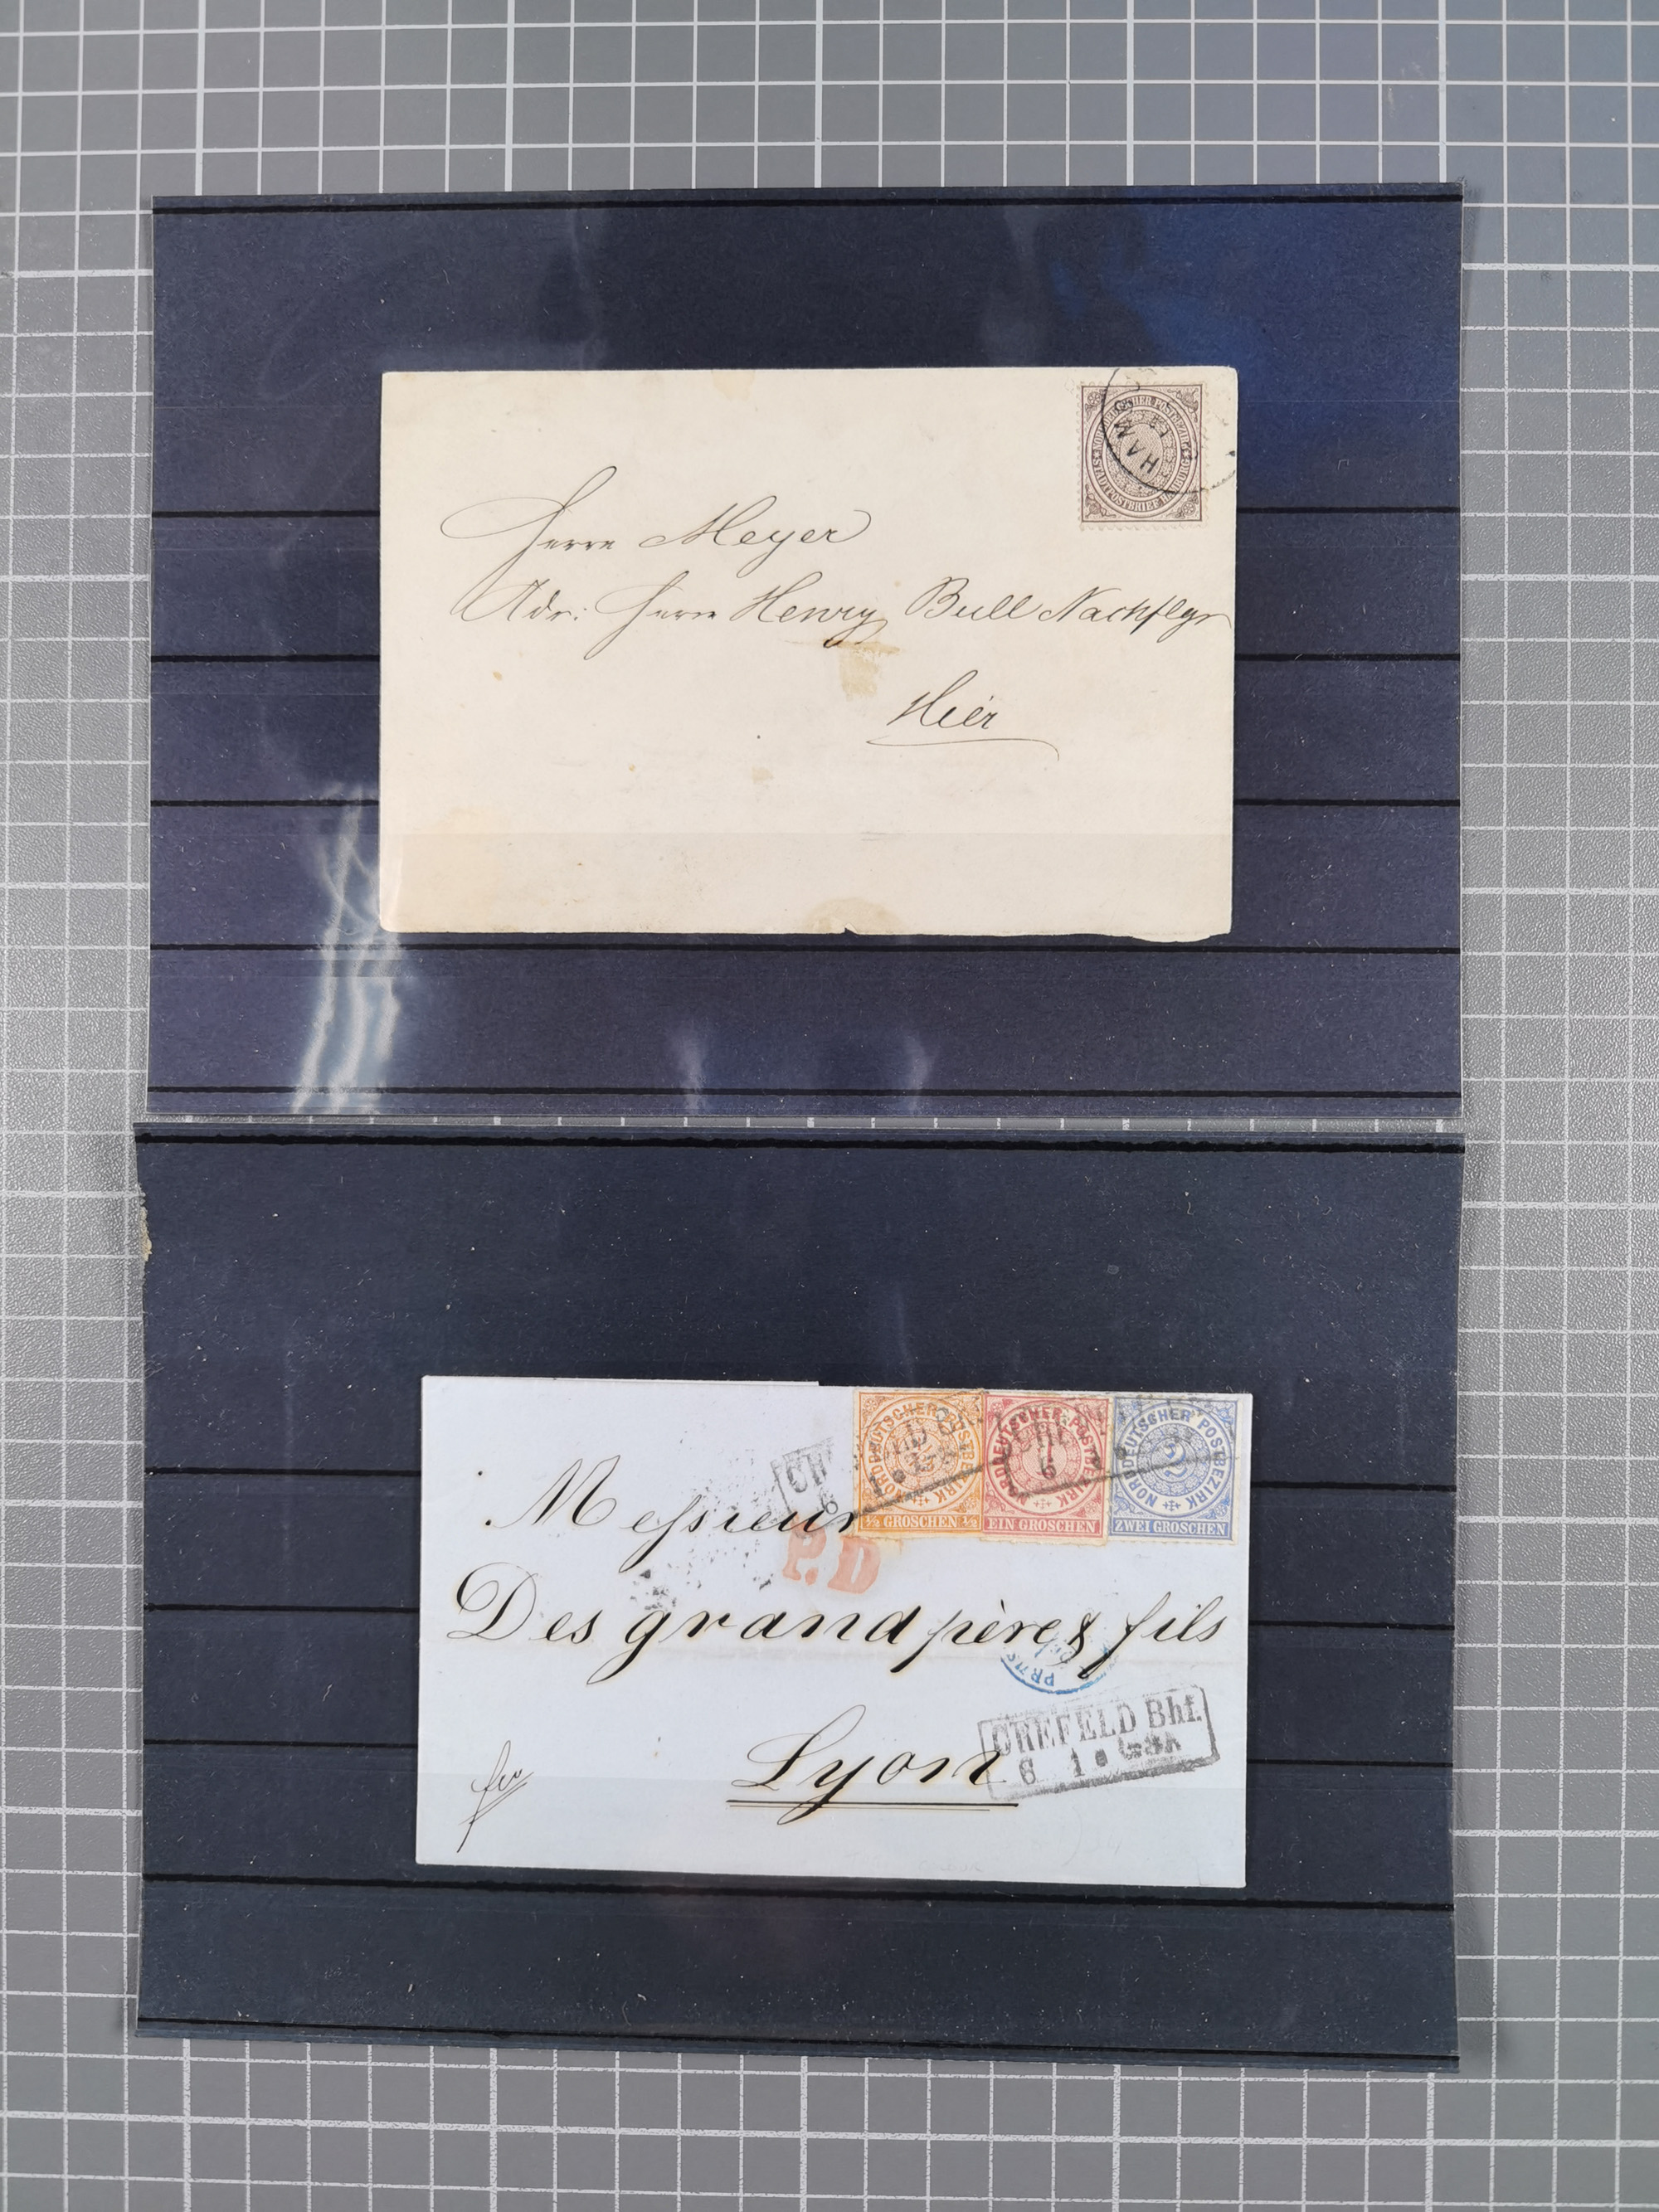 HAM
NORDDEUTSCHER POSTBEZIRK
STADTPOSTBRIEF HAMBURG
Herrn Meyer
Adr: Herrn Henry Bull Nachflgr
Hier
NORDDEUTSCHER POSTBEZIRK
1/2 GROSCHEN 1/2
NORDDEUTSCHER POSTBEZIRK
EIN GROSCHEN
NORDDEUTSCHER POSTBEZIRK
2
ZWEI GROSCHEN
Messieurs
P.D
Des grand père & fils
PRUS
CREFELD Bhf.
6 1
Lyon